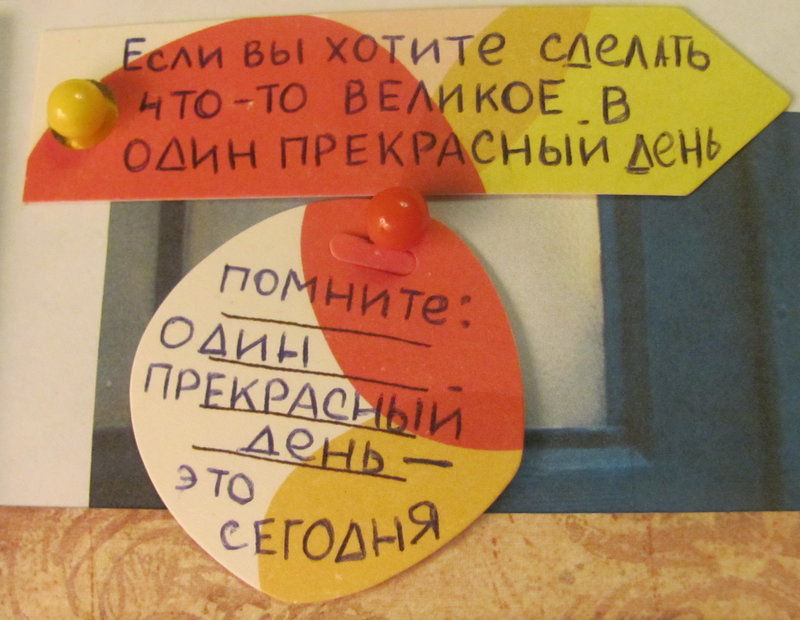 Если вы хотите сделать
что-то великое в
один прекрасный день
помните:
один
прекрасный
день —
это
сегодня